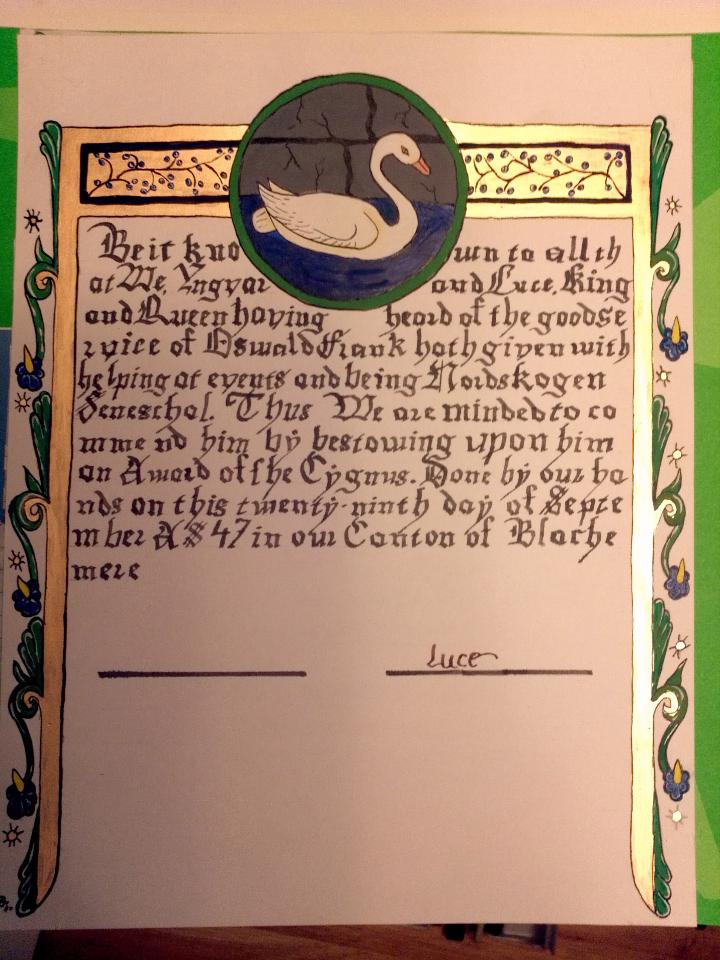 Be it kno wn to all th
at We, Yngvar and Luce, King
and Queen having heard of the good se
rvice of Oswald Frank hath given with
helping at events and being Nordskogen
Seneschal. Thus We are minded to co
mme nd him by bestowing upon him
an Award of the Cygnus. Done by our ha
nds on this twenty-ninth day of Septe
mber AS 47 in our Canton of Blache
mere
Luce